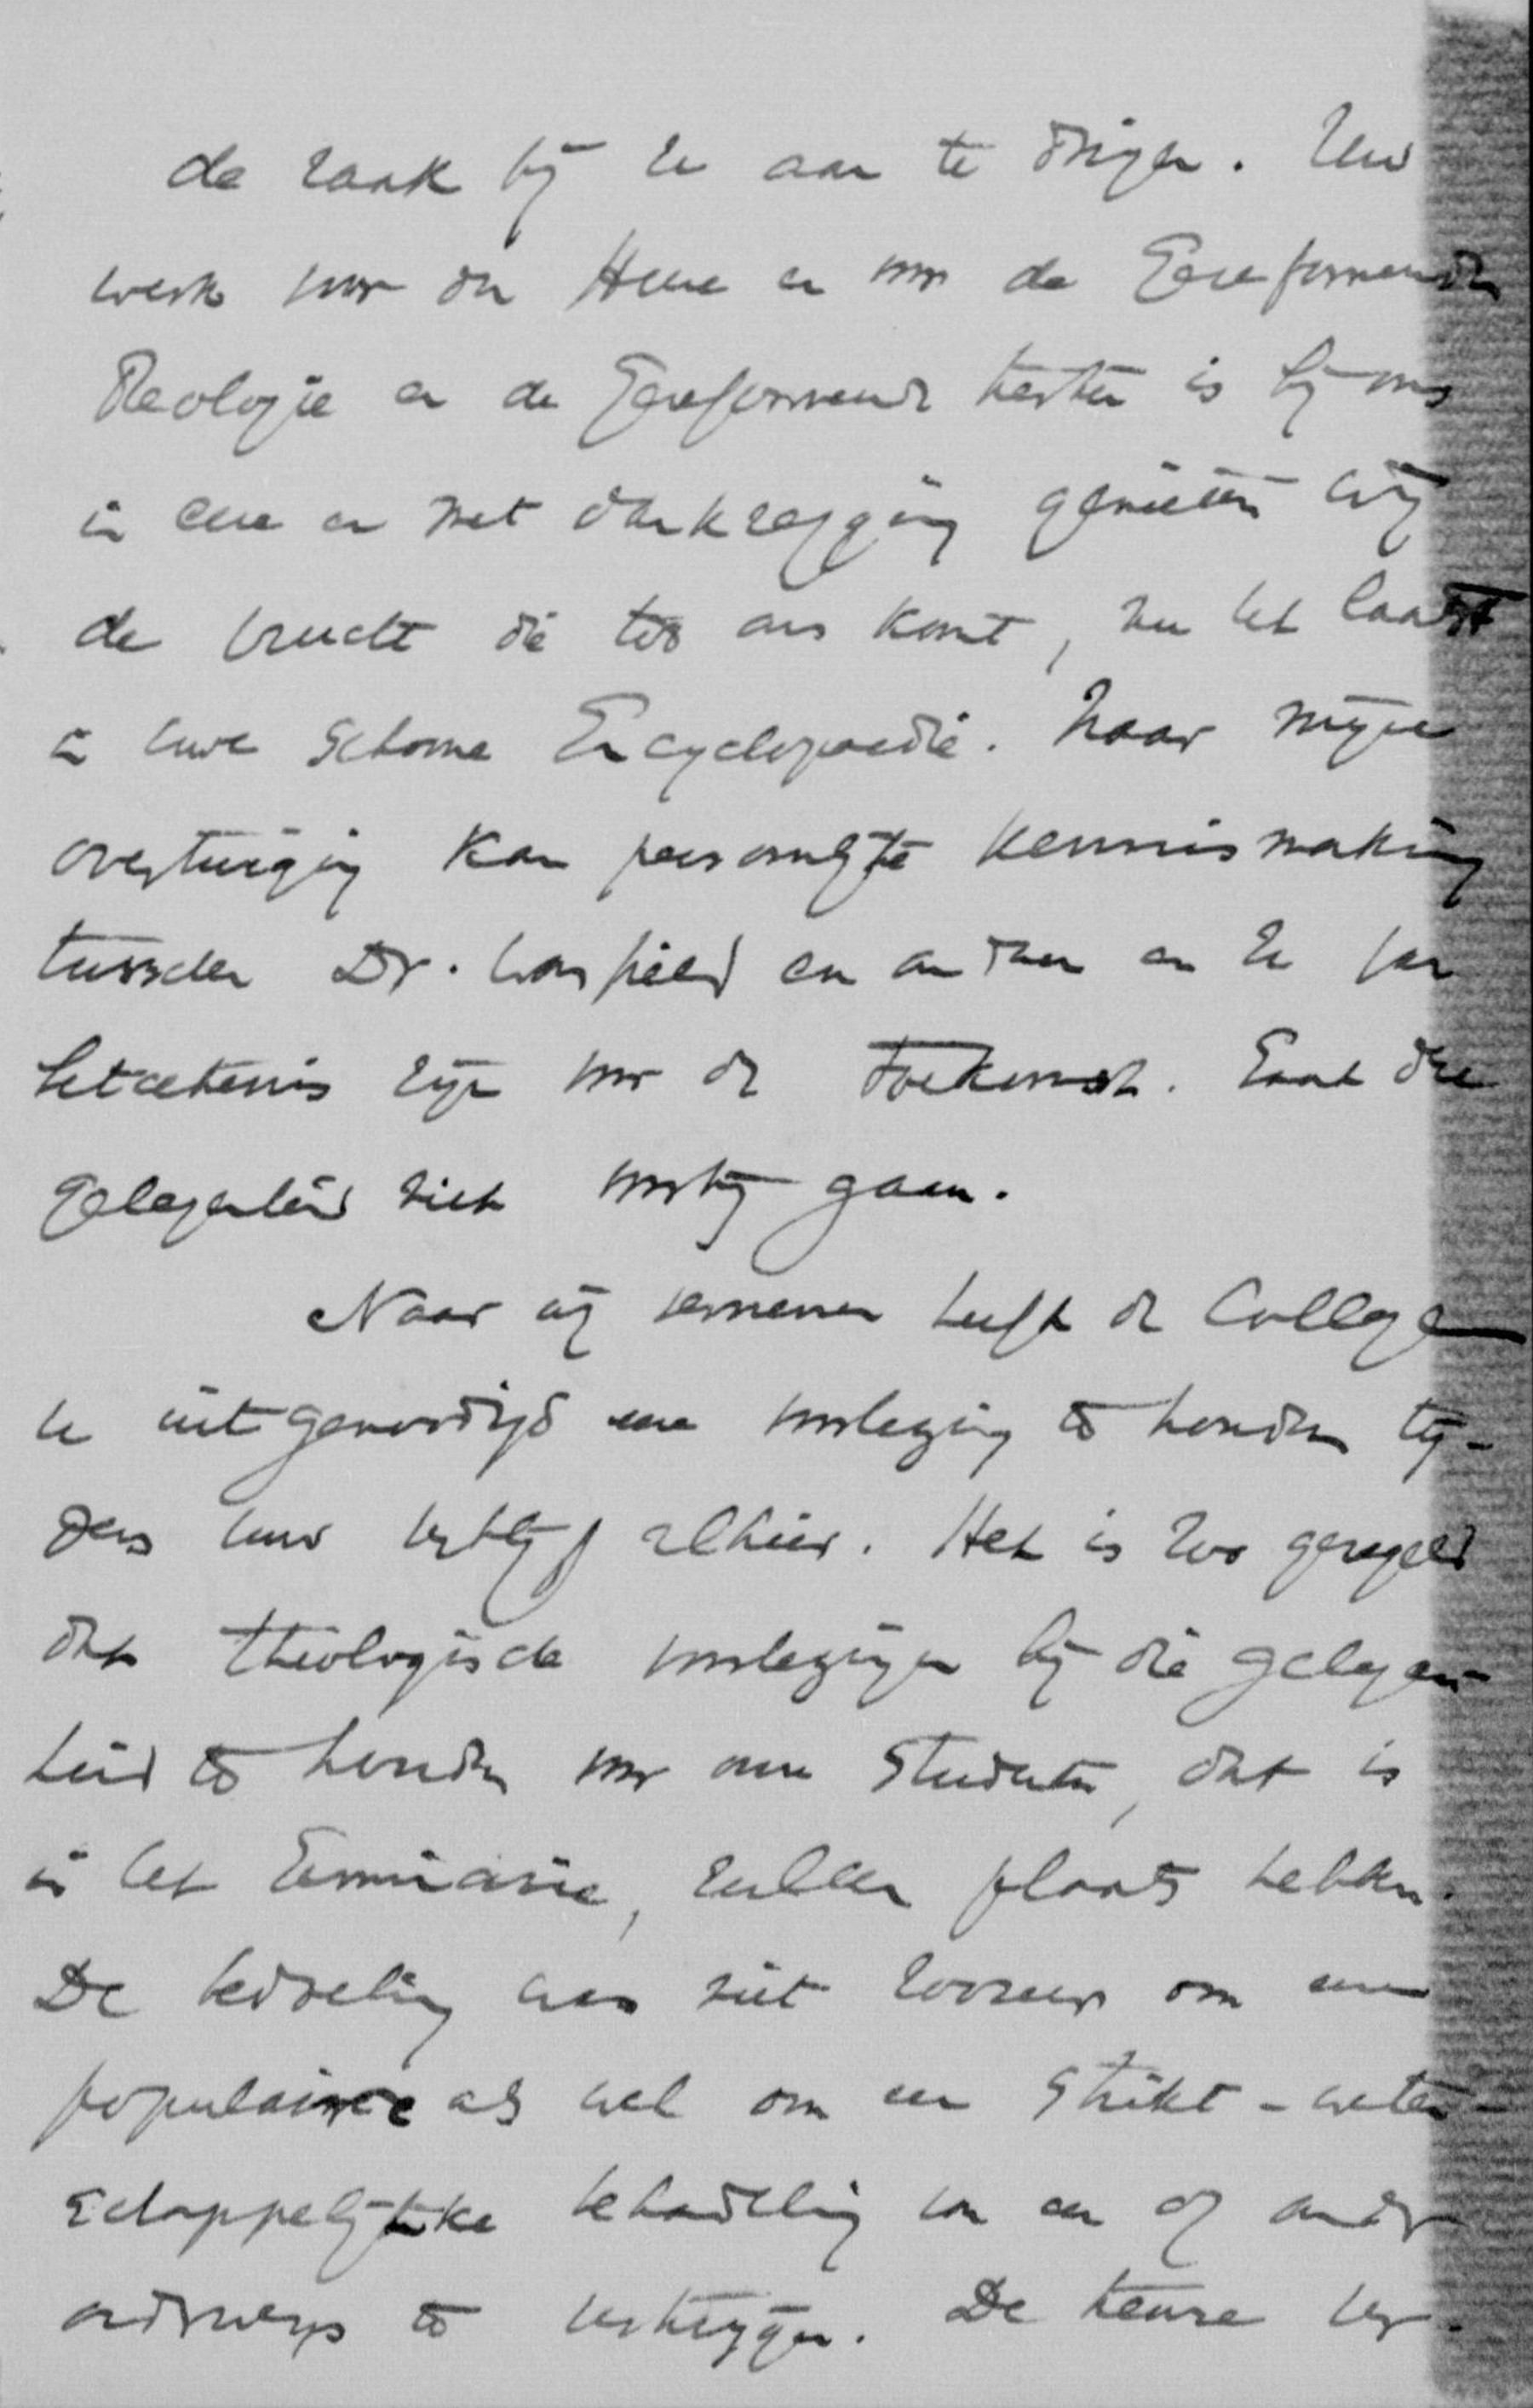 de zaak bij U aan te dringen. Uw
werk voor den Heere en voor de Gereformeerde
Theologie en de Gereformeerde kerken is bij ons
in eere en met dankzegging genieten wij
de vrucht die tot ons komt, nu het laatst
in uwe schoone Encyclopaedie. Naar mijne
overtuiging kan persoonlijke kennismaking
tusschen Dr. Warfield en anderen en U van
beteekenis zijn voor de toekomst. Laat deze
gelegenheid niet voorbij gaan.
Naar wij vernemen heeft de College
U uitgenoodigd eene voorlezing te houden tij-
dens uw verblijf alhier. Het is zoo geregeld
dat theologische voorlezingen bij die gelegen-
heid te houden voor onze studenten, dat is
in het Seminarie, zullen plaats hebben.
De bedoeling was niet zoozeer om eene
populaire als wel om een strikt-weten-
schappelijke behandeling van een of ander
onderwerp te verkrijgen. De keuze ver-